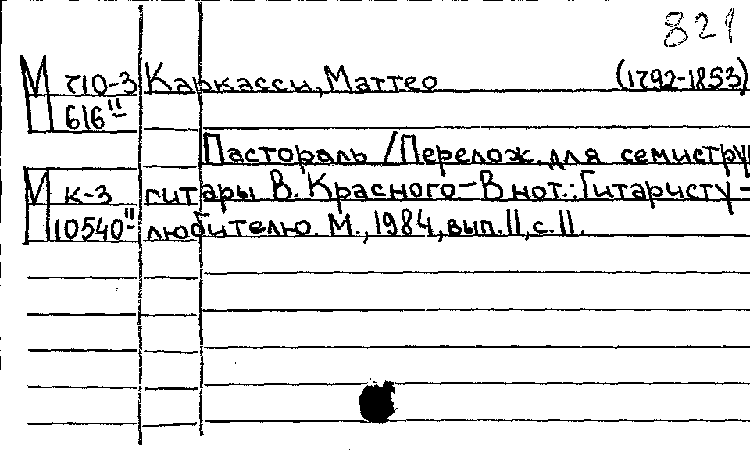 821
М 710-3 Каркасси, Маттео (1792-1853)
616 II
Пастораль / Перелож. для семистру
М К-3 гитары В. Красного – В нот.: Гитаристу –
10540 II любителю. М., 1984, вып. 11, с. 11.